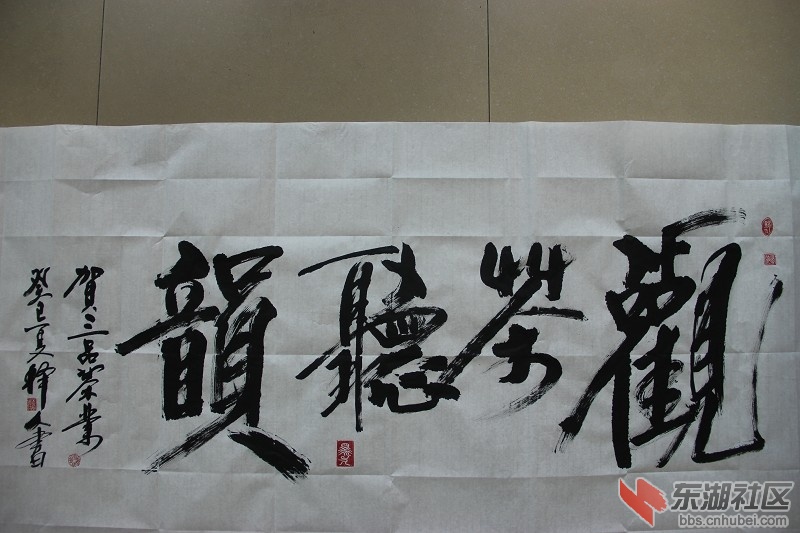 觀茶聽韻
賀三品茶業
癸巳夏擇人書
东湖社区
bbs.cnhubei.com